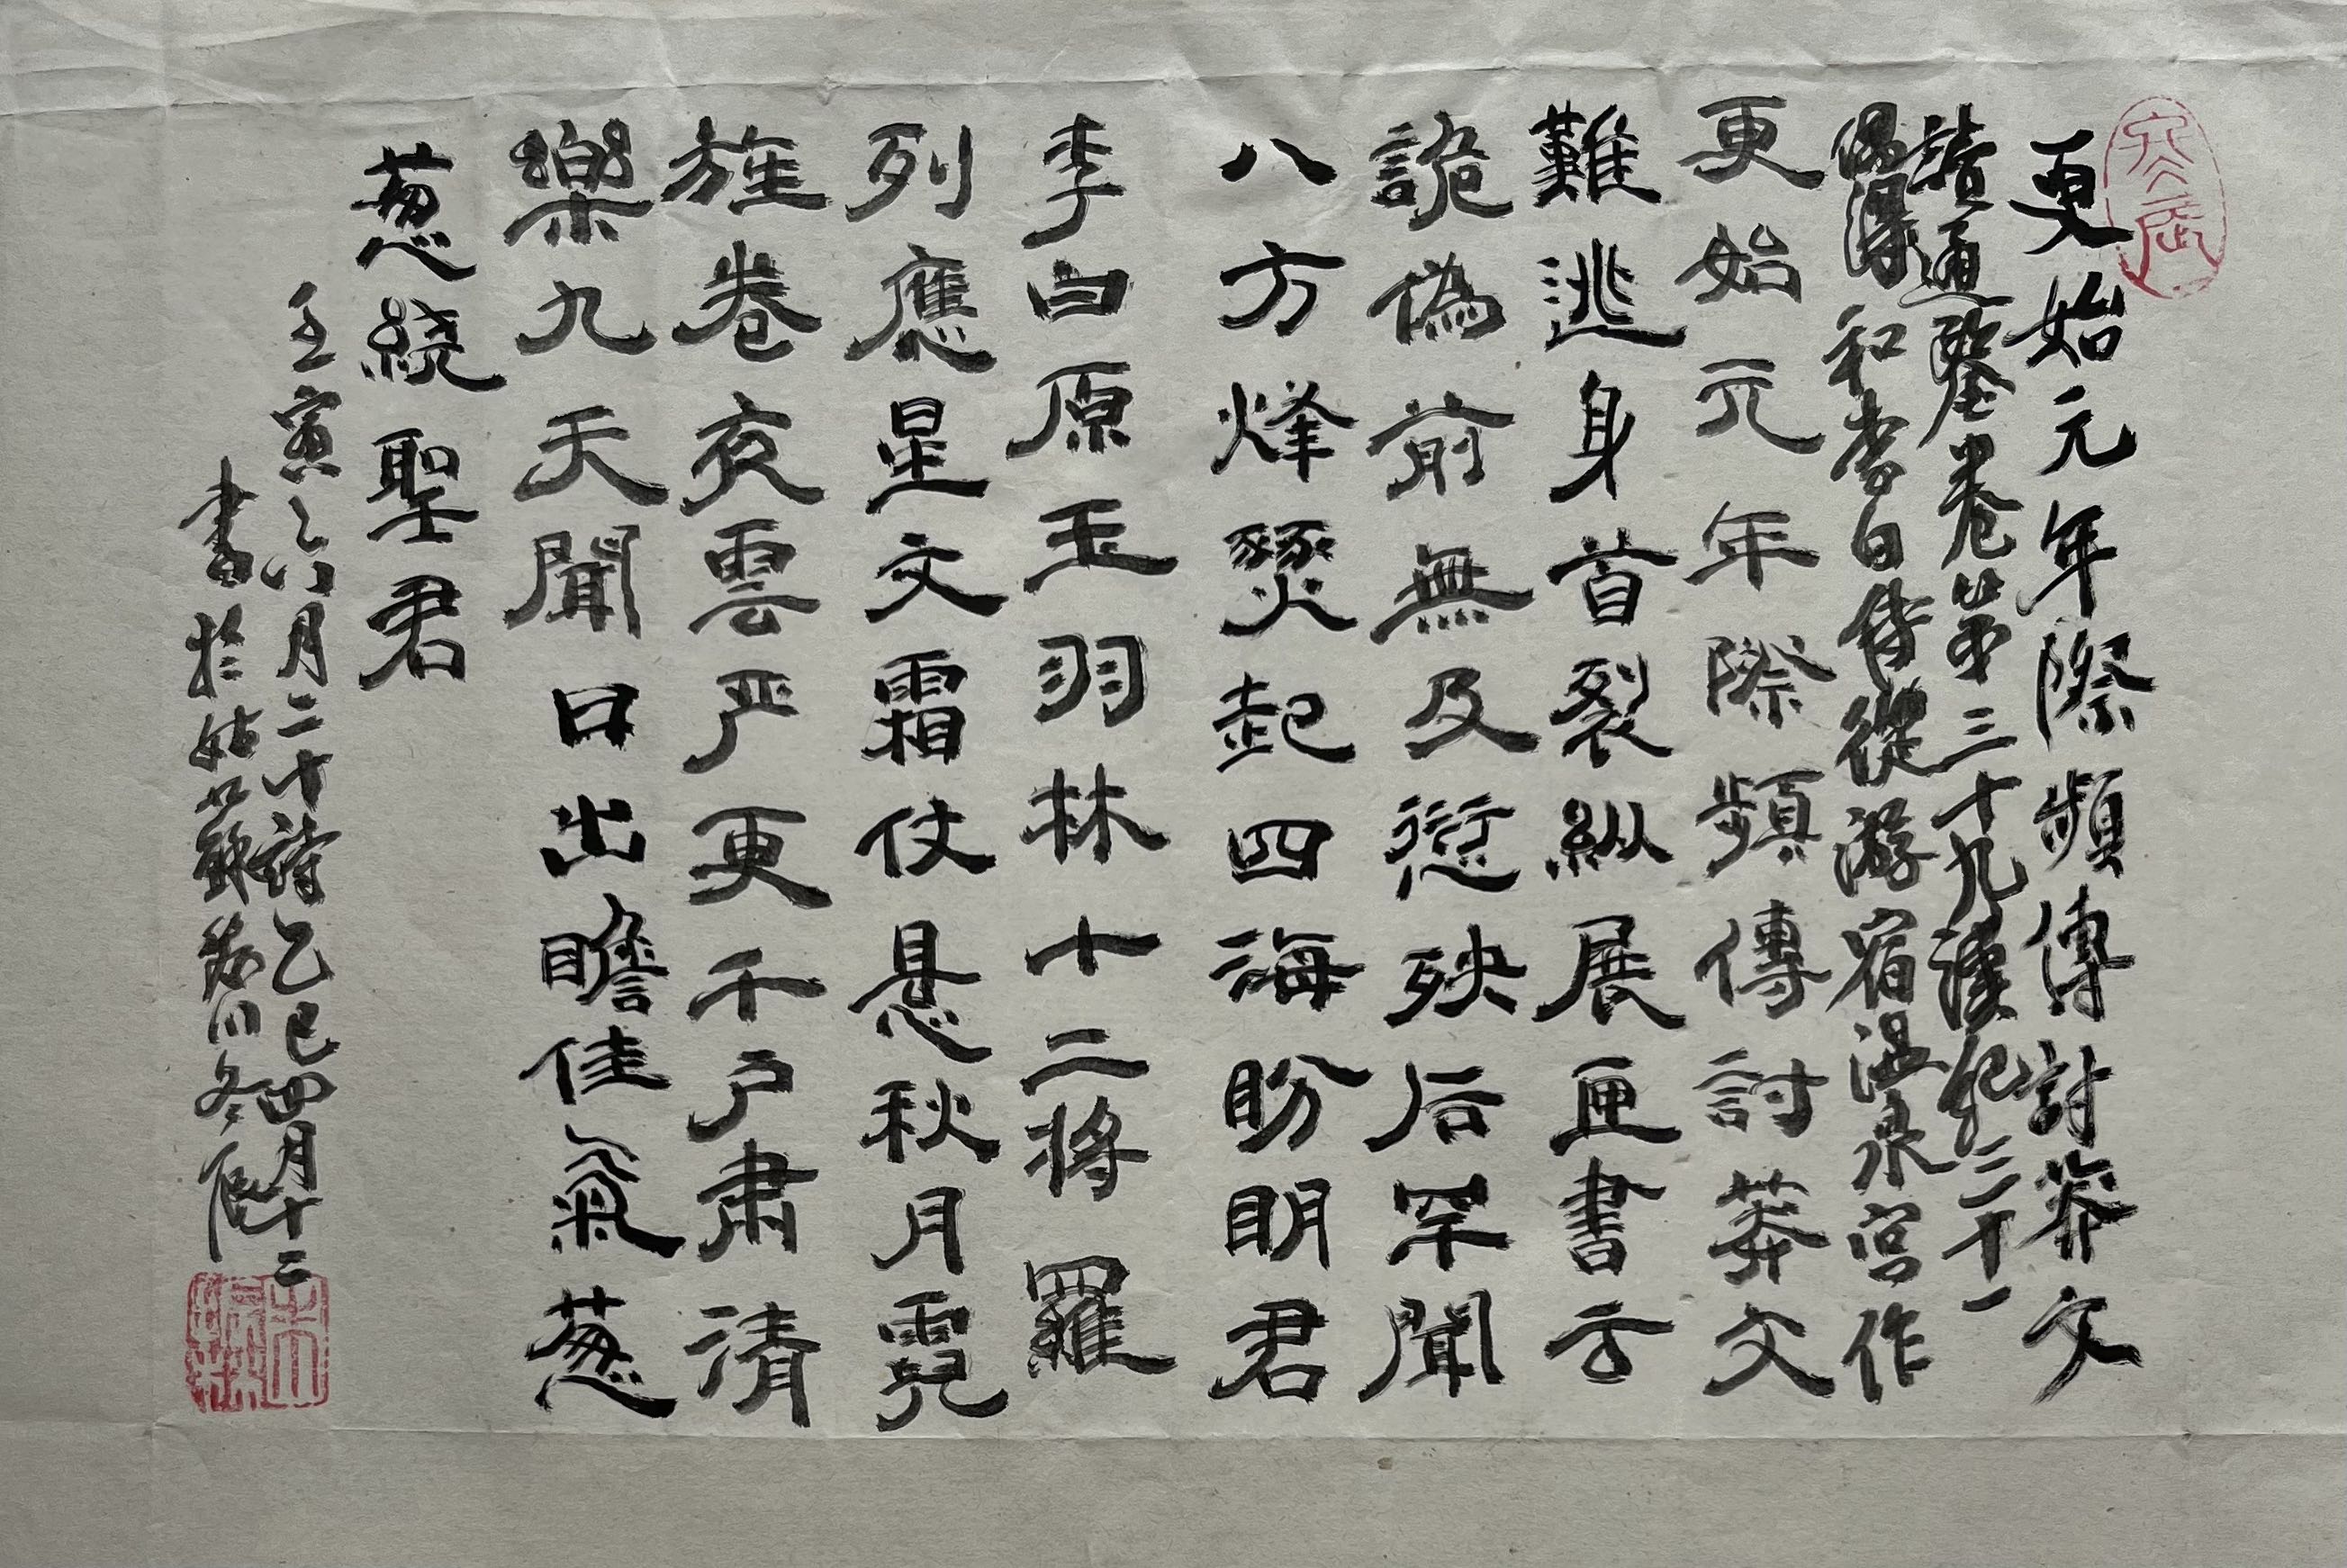 更始元年際頻傳討莽文
讀通鑒卷第三十九漢紀三十一
偶得和李白侍從游宿温泉宮作
更始元年際頻傳討莽文
難逃身首裂縱展画書云
詭偽前無及愆殃后罕聞
八方烽燹起四海盼明君
李白原玉羽林十二将羅
列應星文霜仗悬秋月霓
旌卷夜雲严更千户肅清
樂九天聞日出瞻佳氣葱
葱繞聖君
壬寅六月二十詩乙巳四月十二
書於姑蘇